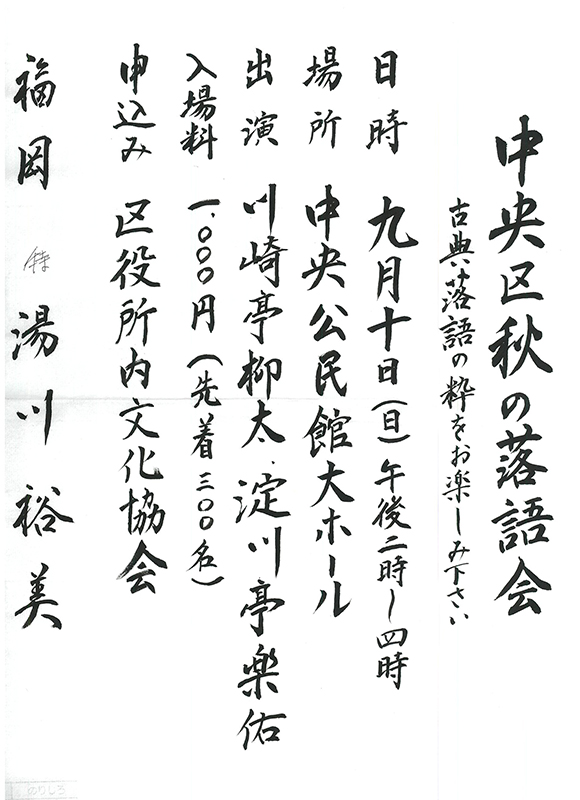 中央区秋の落語会
古典落語の粋をお楽しみ下さい
日時 九月十日(日)午後二時〜四時
場所 中央公民館大ホール
出演 川崎亭柳太・淀川亭楽佑
入場料 一、〇〇〇円(先着三〇〇名)
申込み 区役所内文化協会
福岡 湯川裕美
のりしろ